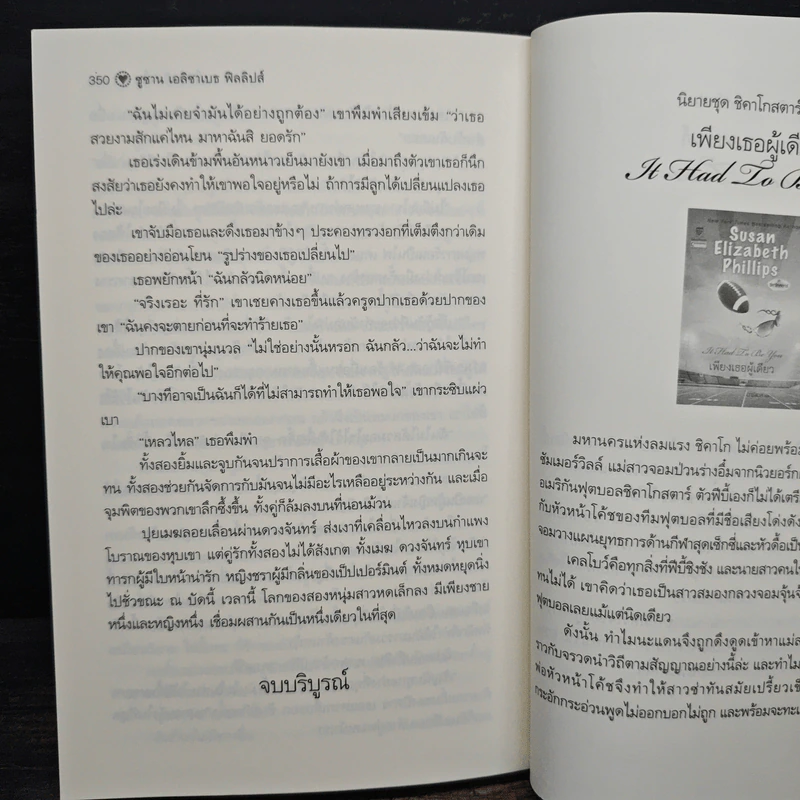 350 ซูซาน เอลิซาเบธ ฟิลลิปส์
“ฉันไม่เคยจำมันได้อย่างถูกต้อง” เขาพึมพำเสียงเข้ม “ว่าเธอ
สวยงามสักแค่ไหน มาหาฉันสิ ยอดรัก”
เธอเร่งเดินข้ามพื้นอันหนาวเย็นมายังเขา เมื่อมาถึงตัวเขาเธอก็นึก
สงสัยว่าเธอยังคงทำให้เขาพอใจอยู่หรือไม่ ถ้าการมีลูกได้เปลี่ยนแปลงเธอ
ไปล่ะ
เขาจับมือเธอและดึงเธอมาข้างๆ ประคองทรวงอกที่เต็มตึงกว่าเดิม
ของเธออย่างอ่อนโยน “รูปร่างของเธอเปลี่ยนไป”
เธอพยักหน้า “ฉันกลัวนิดหน่อย”
“จริงเรอะ ที่รัก” เขาเชยคางเธอขึ้นแล้วครูดปากเธอด้วยปากของ
เขา “ฉันคงจะตายก่อนที่จะทำร้ายเธอ”
ปากของเขานุ่มนวล “ไม่ใช่อย่างนั้นหรอก ฉันกลัว...ว่าฉันจะไม่ทำ
ให้คุณพอใจอีกต่อไป”
“บางทีอาจเป็นฉันก็ได้ที่ไม่สามารถทำให้เธอพอใจ” เขากระซิบแผ่ว
เบา
“เหลวไหล” เธอพึมพำ
ทั้งสองยิ้มและจูบกันจนปราการเสื้อผ้าของเขากลายเป็นมากเกินจะ
ทน ทั้งสองช่วยกันจัดการกับมันจนไม่มีอะไรเหลืออยู่ระหว่างกัน และเมื่อ
จุมพิตของพวกเขาลึกซึ้งขึ้น ทั้งคู่ก็ล้มลงบนที่นอนม้วน
ปุยเมฆลอยเลื่อนผ่านดวงจันทร์ ส่งเงาที่เคลื่อนไหวลงบนกำแพง
โบราณของหุบเขา แต่คู่รักทั้งสองไม่ได้สังเกต ทั้งเมฆ ดวงจันทร์ หุบเขา
ทารกผู้มีใบหน้าน่ารัก หญิงชราผู้มีกลิ่นของเป็ปเปอร์มินต์ ทั้งหมดหยุดนิ่ง
ไปชั่วขณะ ณ บัดนี้ เวลานี้ โลกของสองหนุ่มสาวหดเล็กลง มีเพียงชาย
หนึ่งและหญิงหนึ่ง เชื่อมผสานกันเป็นหนึ่งเดียวในที่สุด
จบบริบูรณ์
นิยายชุด ชิคาโกสตาร์
เพียงเธอผู้เดี
It Had To B
Susan
Elizabeth
Phillips
It Had To Be You
เพียงเธอผู้เดียว
มหานครแห่งลมแรง ชิคาโก ไม่ค่อยพร้อม
ซัมเมอร์วิลล์ แม่สาวจอมป่วนร่างอึ๋มจากนิวยอร์ก
อเมริกันฟุตบอลชิคาโกสตาร์ ตัวฟีบี้เองก็ไม่ได้เตรี
กับหัวหน้าโค้ชของทีมฟุตบอลที่มีชื่อเสียงโด่งดัง
จอมวางแผนยุทธการด้านกีฬาสุดเซ็กซี่และหัวดื้อเป็น
เคลโบว์คือทุกสิ่งที่ฟีบี้ชิงชัง และนายสาวคนใ
ทนไม่ได้ เขาคิดว่าเธอเป็นสาวสมองกลวงจอมจุ้นจ้
ฟุตบอลเลยแม้แต่นิดเดียว
ดังนั้น ทำไมนะแดนจึงถูกดึงดูดเข้าหาแม่ส
ราวกับจรวดนำวิถีตามสัญญาณอย่างนี้ล่ะ และทำไม
พ่อหัวหน้าโค้ชจึงทำให้สาวซ่าทันสมัยเปรี้ยวเข็
กระอักกระอ่วนพูดไม่ออกบอกไม่ถูก และพร้อมจะทะเ